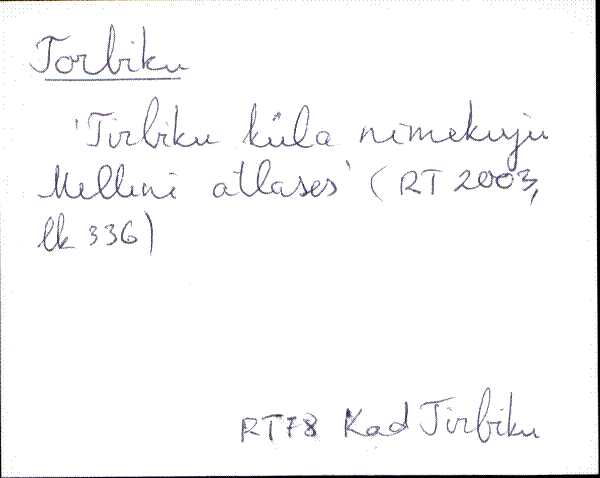 Torbiku
'Tirbiku küla nimekuju
Mellini atlases' (RT 2003,
lk 336)
RT78 Kad Tirbiku